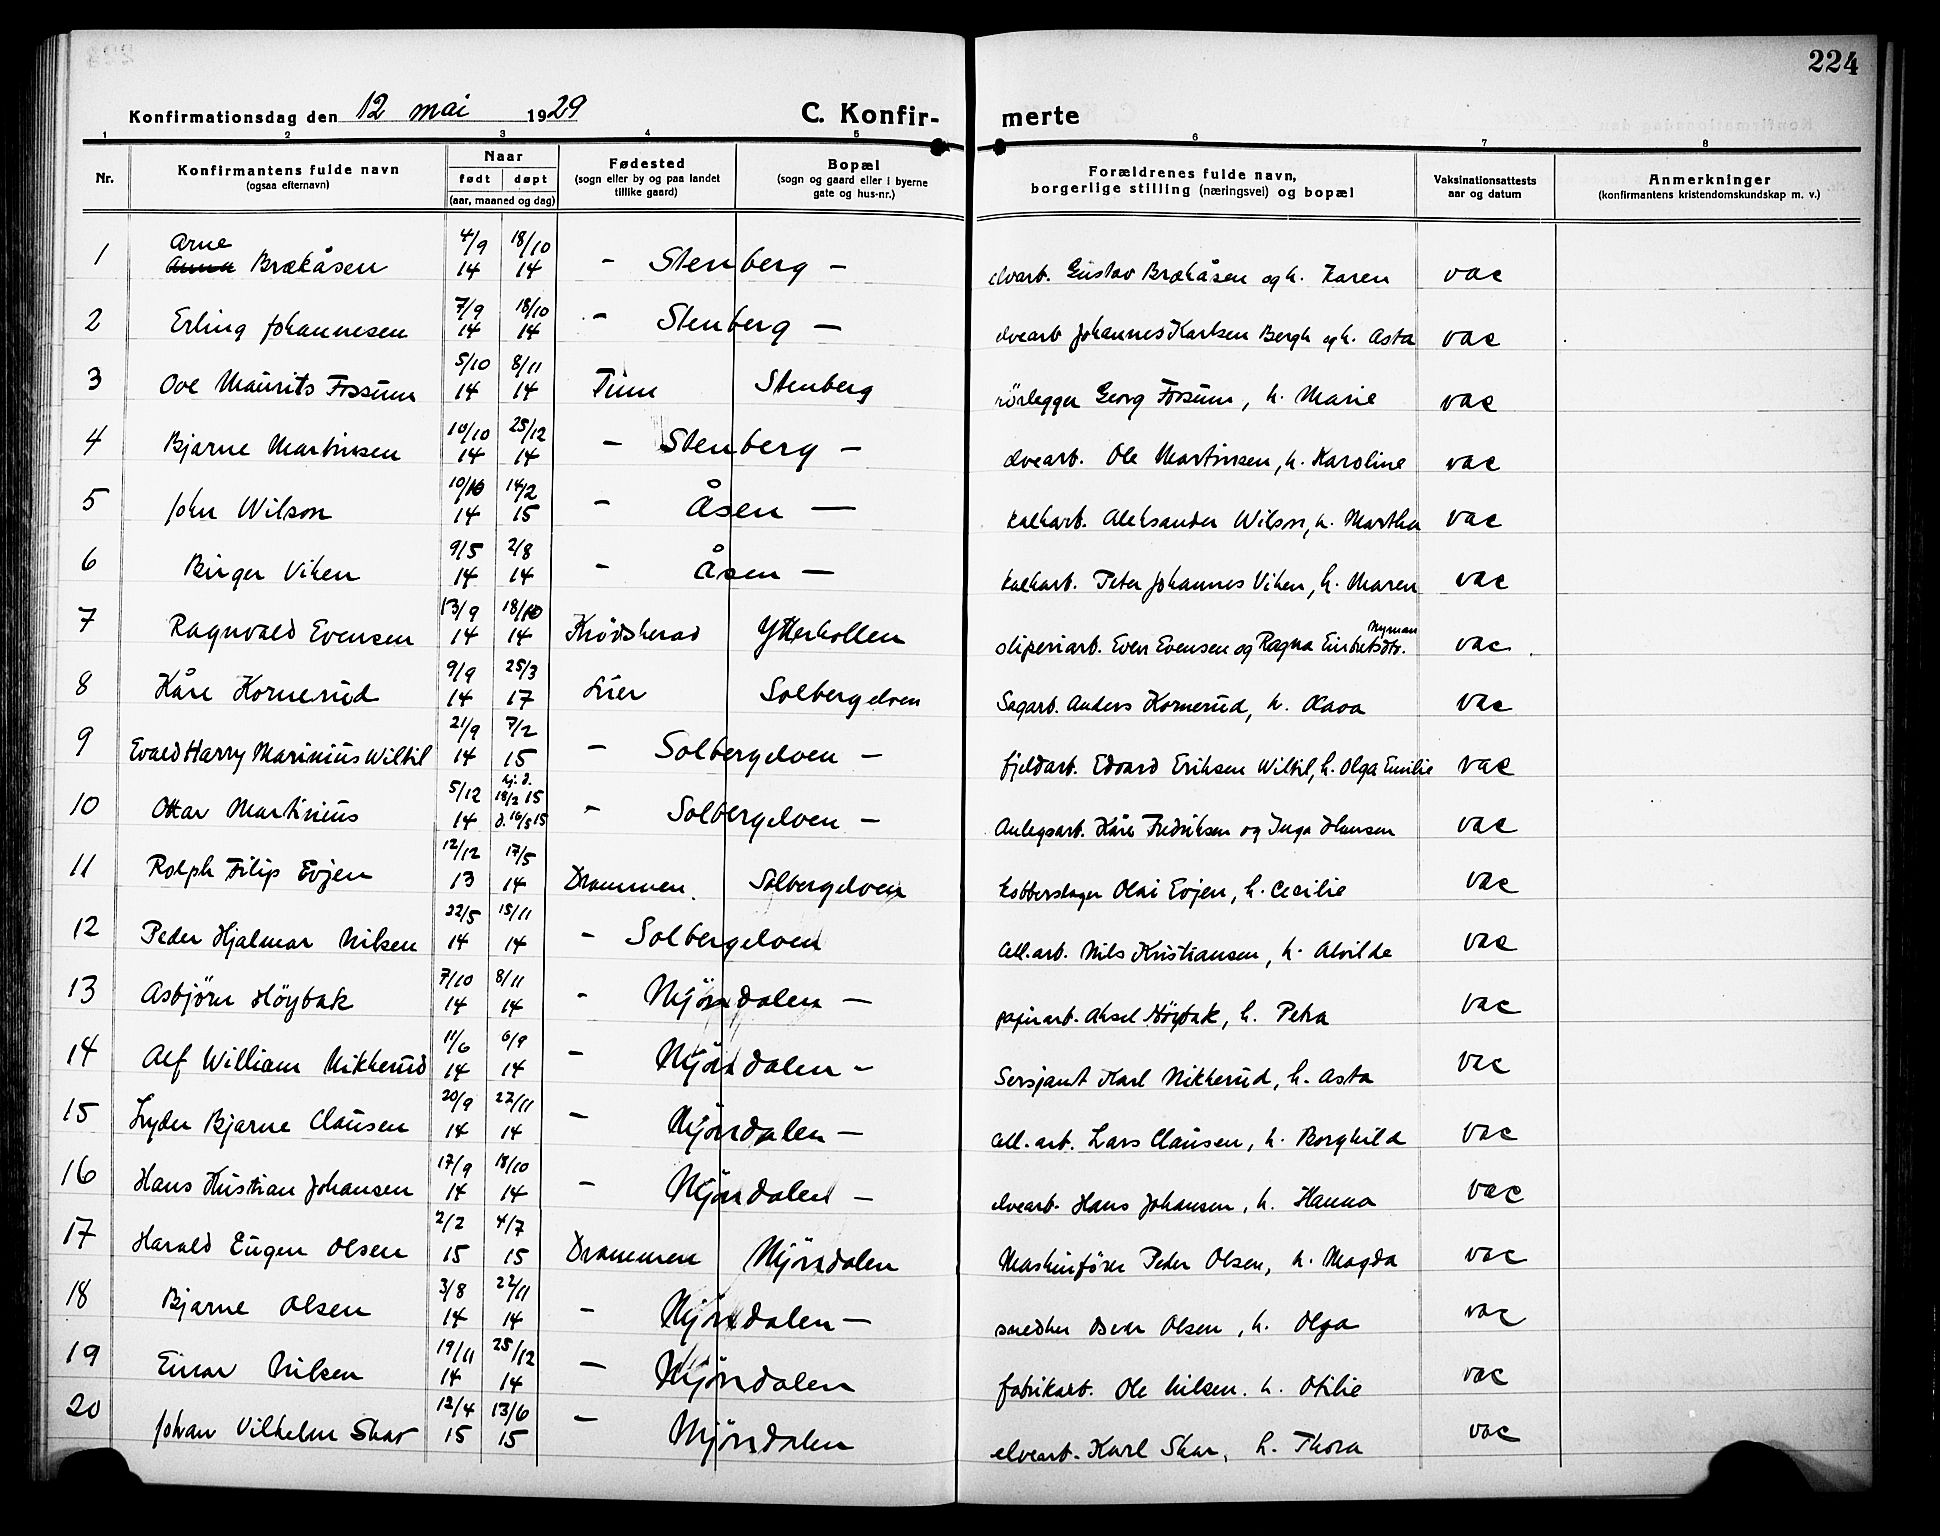 224
Konfirmationsdag den 12 mai 1929
C. Konfir- merte
1 2 3 4 5 6 7 8
Nr. Konfirmantens fulde navn (ogsaa efternavn) Naar født døpt (aar, maaned og dag) Fødested (sogn eller by og paa landet tillike gaard) Bopæl (sogn og gaard eller i byerne gate og hus-nr.) Forældrenes fulde navn, borgerlige stilling (næringsvei) og bopæl Vaksinationsattests aar og datum Anmerkninger (konfirmantens kristendomskundskap m. v.)
1 Arne Anna Brækåsen 4/9 14 18/10 14 - Stenberg - elvarb. Gustav Brækåsen og h. Karen vac
2 Erling Johannesen 7/9 14 18/10 14 - Stenberg - elvearb Johannes Karlsen Bergh og h. Asta vac
3 Ove Maurits Fossum 5/10 14 8/11 14 Stenberg rörlegger Georg Fossum, h. Marie vac
4 Bjarne Martinsen 10/10 14 25/12 14 - Stenberg - elvearb. Ole Martinsen, h. Karoline vac
5 John Wilson 10/10 14 14/2 15 - Åsen - kalkarb. Aleksander Wilson, h. Martha vac
6 Birger Viken 9/5 14 2/8 14 - Åsen - kalkarb. Peter Johannes Viken, h. Maren vac
7 Ragnvald Evensen 13/9 14 18/10 14 Krødsherad Ytterkollen sliperiarb. Even Evensen og Ragna Einbuts­dtr. Nyman vac
8 Kåre Kornerud 9/9 14 25/3 17 Lier Solbergelven Sagarb. Anders Kornerud, h. vac
9 Evald Harry Marinius Wiltil 21/9 14 7/2 15 - Solbergelven - fjeldarb. Edvard Eriksen Wiltil, h. Olga Emilie vac
10 Ottar Martinius 5/12 14 hj. d. 18/2 15 d. 16/5 15 - Solbergelven - Anlegsarb. Kåre Fredriksen og Inga Hansen vac
11 Rolph Filip Evjen 12/12 13 17/5 14 Drammen. Solbergelven kobberslager Olai Evjen, h. Cecilie vac
12 Peder Hjalmar Nilsen 22/5 14 15/11 14 - Solbergelven cell.arb. Nils Kristiansen, h. Alvilde vac
13 Asbjörn Höybak 7/10 14 8/11 14 - Mjöndalen - papirarb. Aksel Höybak, h. Petra vac
14 Alf William Nikkerud 11/6 14 6/9 14 - Mjöndalen - Sersjant Karl Nikkerud, h. Asta vac
15 Lyder Bjarne Clausen 20/9 14 22/11 14 - Mjöndalen - cell.arb. Lars Clausen, h. Borghild vac
16 Hans Kristian Johansen 17/9 14 18/10 14 - Mjöndalen - elvearb. Hans Johansen, h. Hanna vac
17 Harald Eugen Olsen 2/2 15 4/7 15 Drammen Mjöndalen Maskinförer Peder Olsen, h. Magda vac
18 Bjarne Olsen 3/8 14 22/11 14 - Mjöndalen - snedker Olsen, h. Olga vac
19 Einar Nilsen 19/11 14 25/12 14 - Mjöndalen fabrikarb. Ole Nilsen. h. Otilie vac
20 Johan Vilhelm Skar 12/4 15 13/6 15 - Mjöndalen elvearb. Karl Skar, h. Thora vac